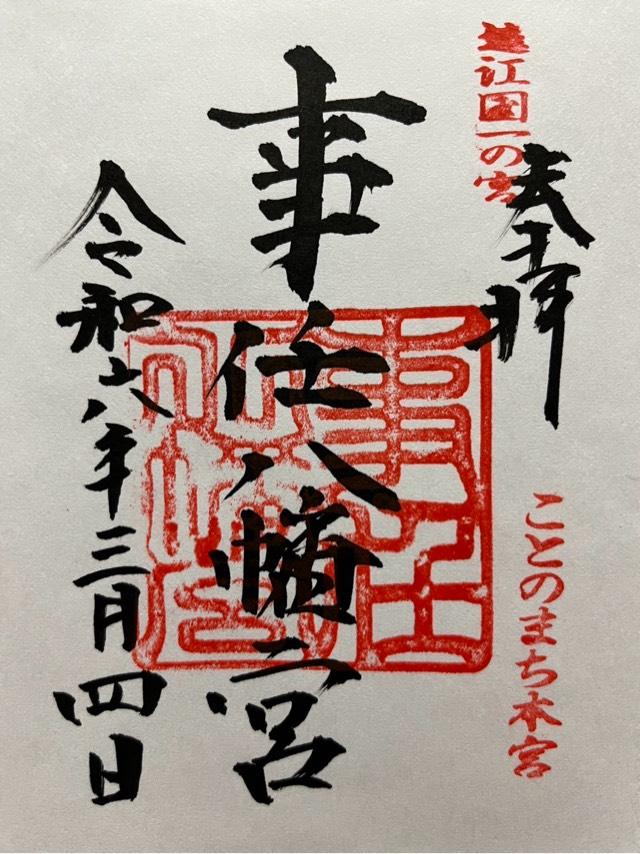 遠江国一の宮
奉拝
ことのまち本宮
事任八幡宮
事任八幡宮
令和六年三月四日